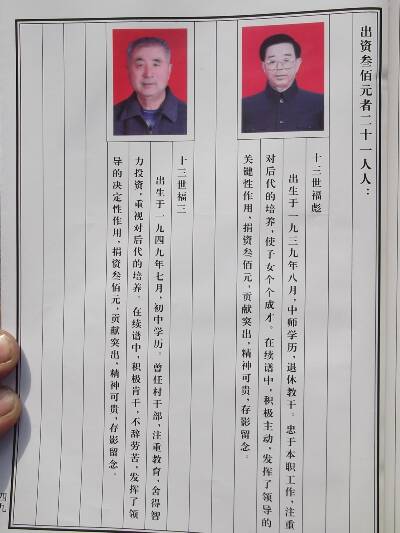 出资叁佰元者二十一人人：
十三世福彪
出生于一九三九年八月，中师学历，退休教干。忠于本职工作，注重
对后代的培养，使子女个个成才。在续谱中，积极主动，发挥了领导的
关键性作用，捐资叁佰元，贡献突出，精神可贵，存影留念。
十三世福三
出生于一九四九年七月，初中学历。曾任村干部，注重教育，舍得智
力投资，重视对后代的培养。在续谱中，积极肯干，不辞劳苦，发挥了领
导的决定性作用，捐资叁佰元，贡献突出，精神可贵，存影留念。
四九